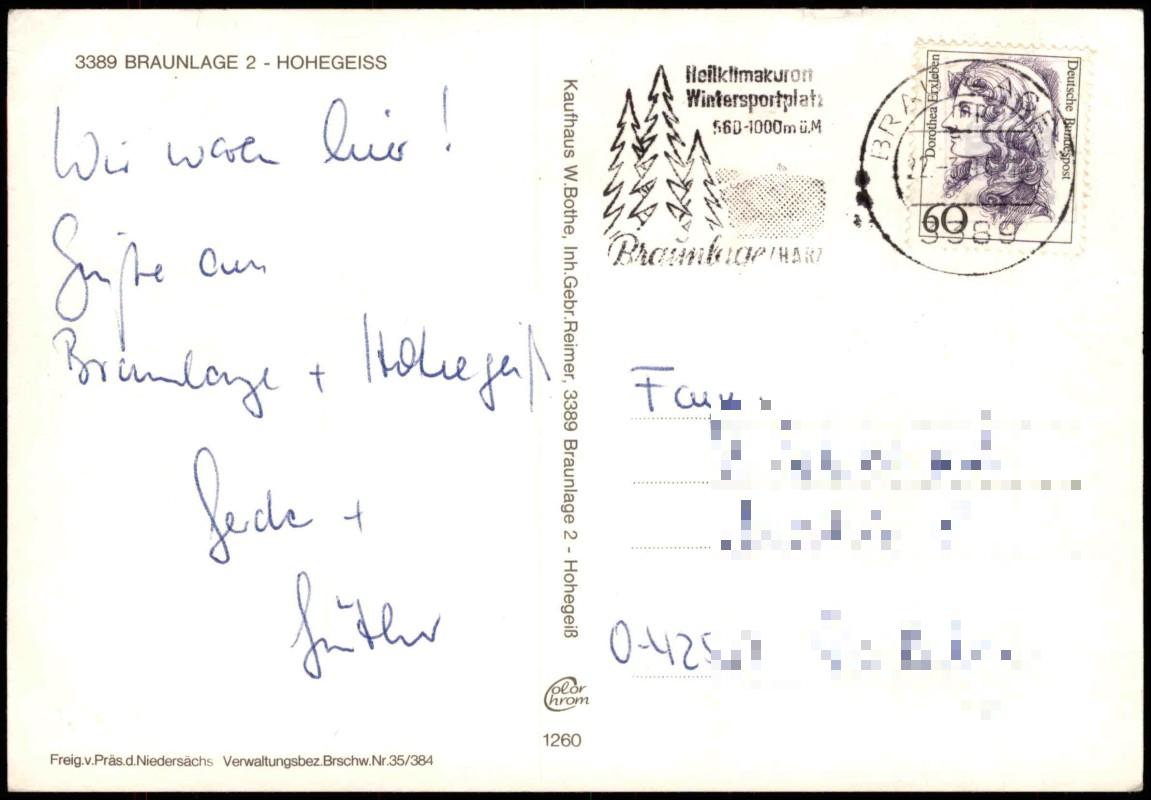 3389 BRAUNLAGE 2 - HOHEGEISS
Wir waren hier!
Grüße aus
Braunlage + Hohegeiß
Gerda +
Günther
Freig.v.Präs.d.Niedersächs Verwaltungsbez.Brschw.Nr.35/384
Kaufhaus W.Bothe, Inh.Gebr.Reimer, 3389 Braunlage 2 - Hohegeiß
Color
Chrom
1260
Heilklimakurort
Wintersportplatz
560-1000m ü.M
Braunlage/HARZ
BRAUNLAGE
3389
Dorothea Erxleben
Deutsche Bundespost
60
Fam.
O-425